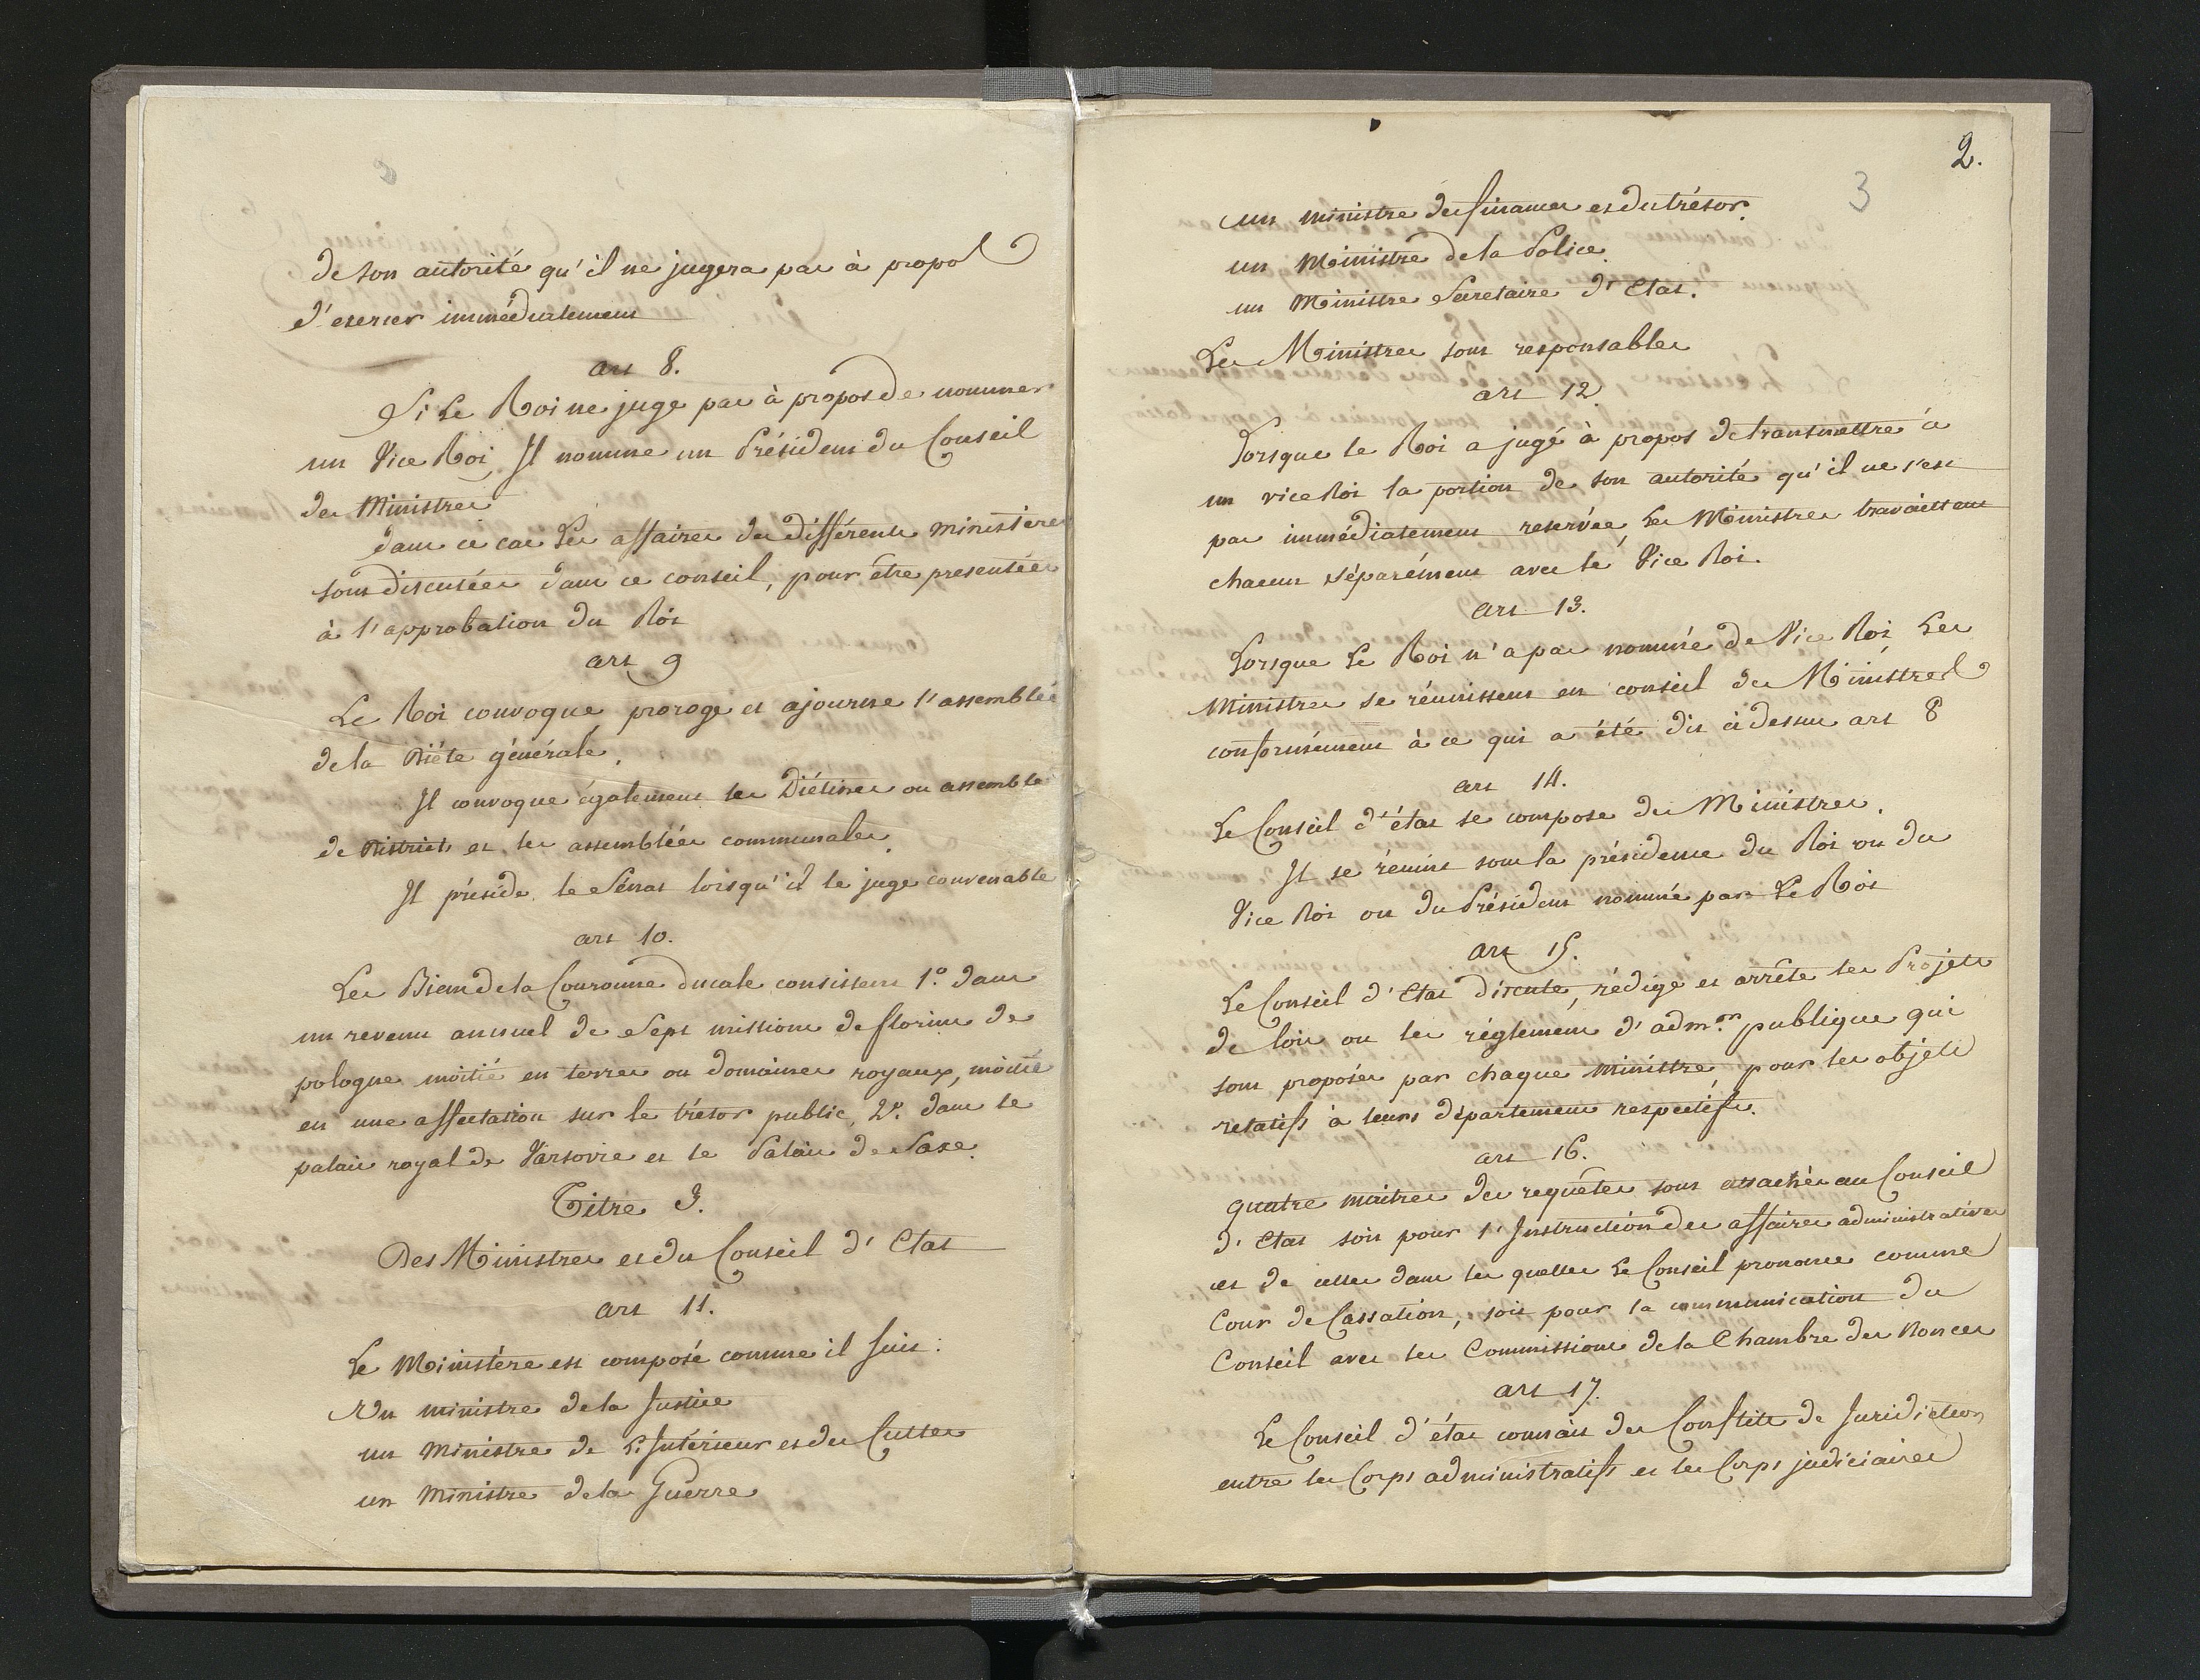 de son autorité qu'il ne jugera pas à propos
d'exercer immédiatement
art 8.
Si Le Roi ne juge pas à propos de nommer
un Vice Roi, Il nomme un Président du Conseil
des Ministres
dans ce cas Les affaires des différents ministères
sont discutées dans ce conseil, pour être presentées
à l'approbation du Roi
art 9
Le Roi convoque proroge et ajourne l'assemblée
de la Diéte générale.
Il convoque également les Diétines ou assemblé
de Districts et les assemblées communales.
Il préside le Sénat lorsqu'il le juge convenable
art 10.
Les Biens de la Couronne ducale consistent 1.° dans
un revenu annuel de Sept millions de florins de
pologne moitié en terres ou domaines royaux, moitié
en une affectation sur le trésor public, 2°. dans le
palais royal de Varsovie et le Palais de Saxe.
Titre 3.
Des Ministres et du Conseil d'Etat
art 11.
Le Ministére est composé comme il suit :
Un ministre de la Justice
un Ministre de L'Intérieur et des Cultes
un Ministre de la Guerre
2.
3
un ministre des finances et du trésor.
un Ministre de la Police.
un Ministre Secretaire d'Etat.
Les Ministres sont responsables
art 12.
Lorsque le Roi a jugé à propos de transmettre à
un vice Roi la portion de son autorité qu'il ne s'est
pas immédiatement reservée, Les Ministres travaillent
chacun séparément avec le Vice Roi.
art 13.
Lorsque Le Roi n'a pas nommé de Vice Roi Les
Ministres se réunissent en conseil des Ministres
conformément à ce qui a été dit ci dessus art 8
art 14.
Le Conseil d'état se compose des Ministres.
Il se réunit sous la présidence du Roi ou du
Vice Roi ou du Président nommé par Le Roi
art 15.
Le Conseil d'Etat discute, rédige et arrête les Projets
de lois ou les réglements d'adm.on publique qui
sont proposés par chaque ministre pour les objets
relatifs à leurs départements respectifs.
art 16.
quatre maitres des requêtes sont attachés au Conseil
d'Etat soit pour l'Instruction des affaires administratives
et de celles dans les quelles Le Conseil prononce comme
Cour de Cassation, soit pour la communication du
Conseil avec les Commissions de la Chambre des Nonces
art 17.
Le Conseil d'état connait des Conflits de Juridiction
entre les Corps administratifs et les Corps judiciaires